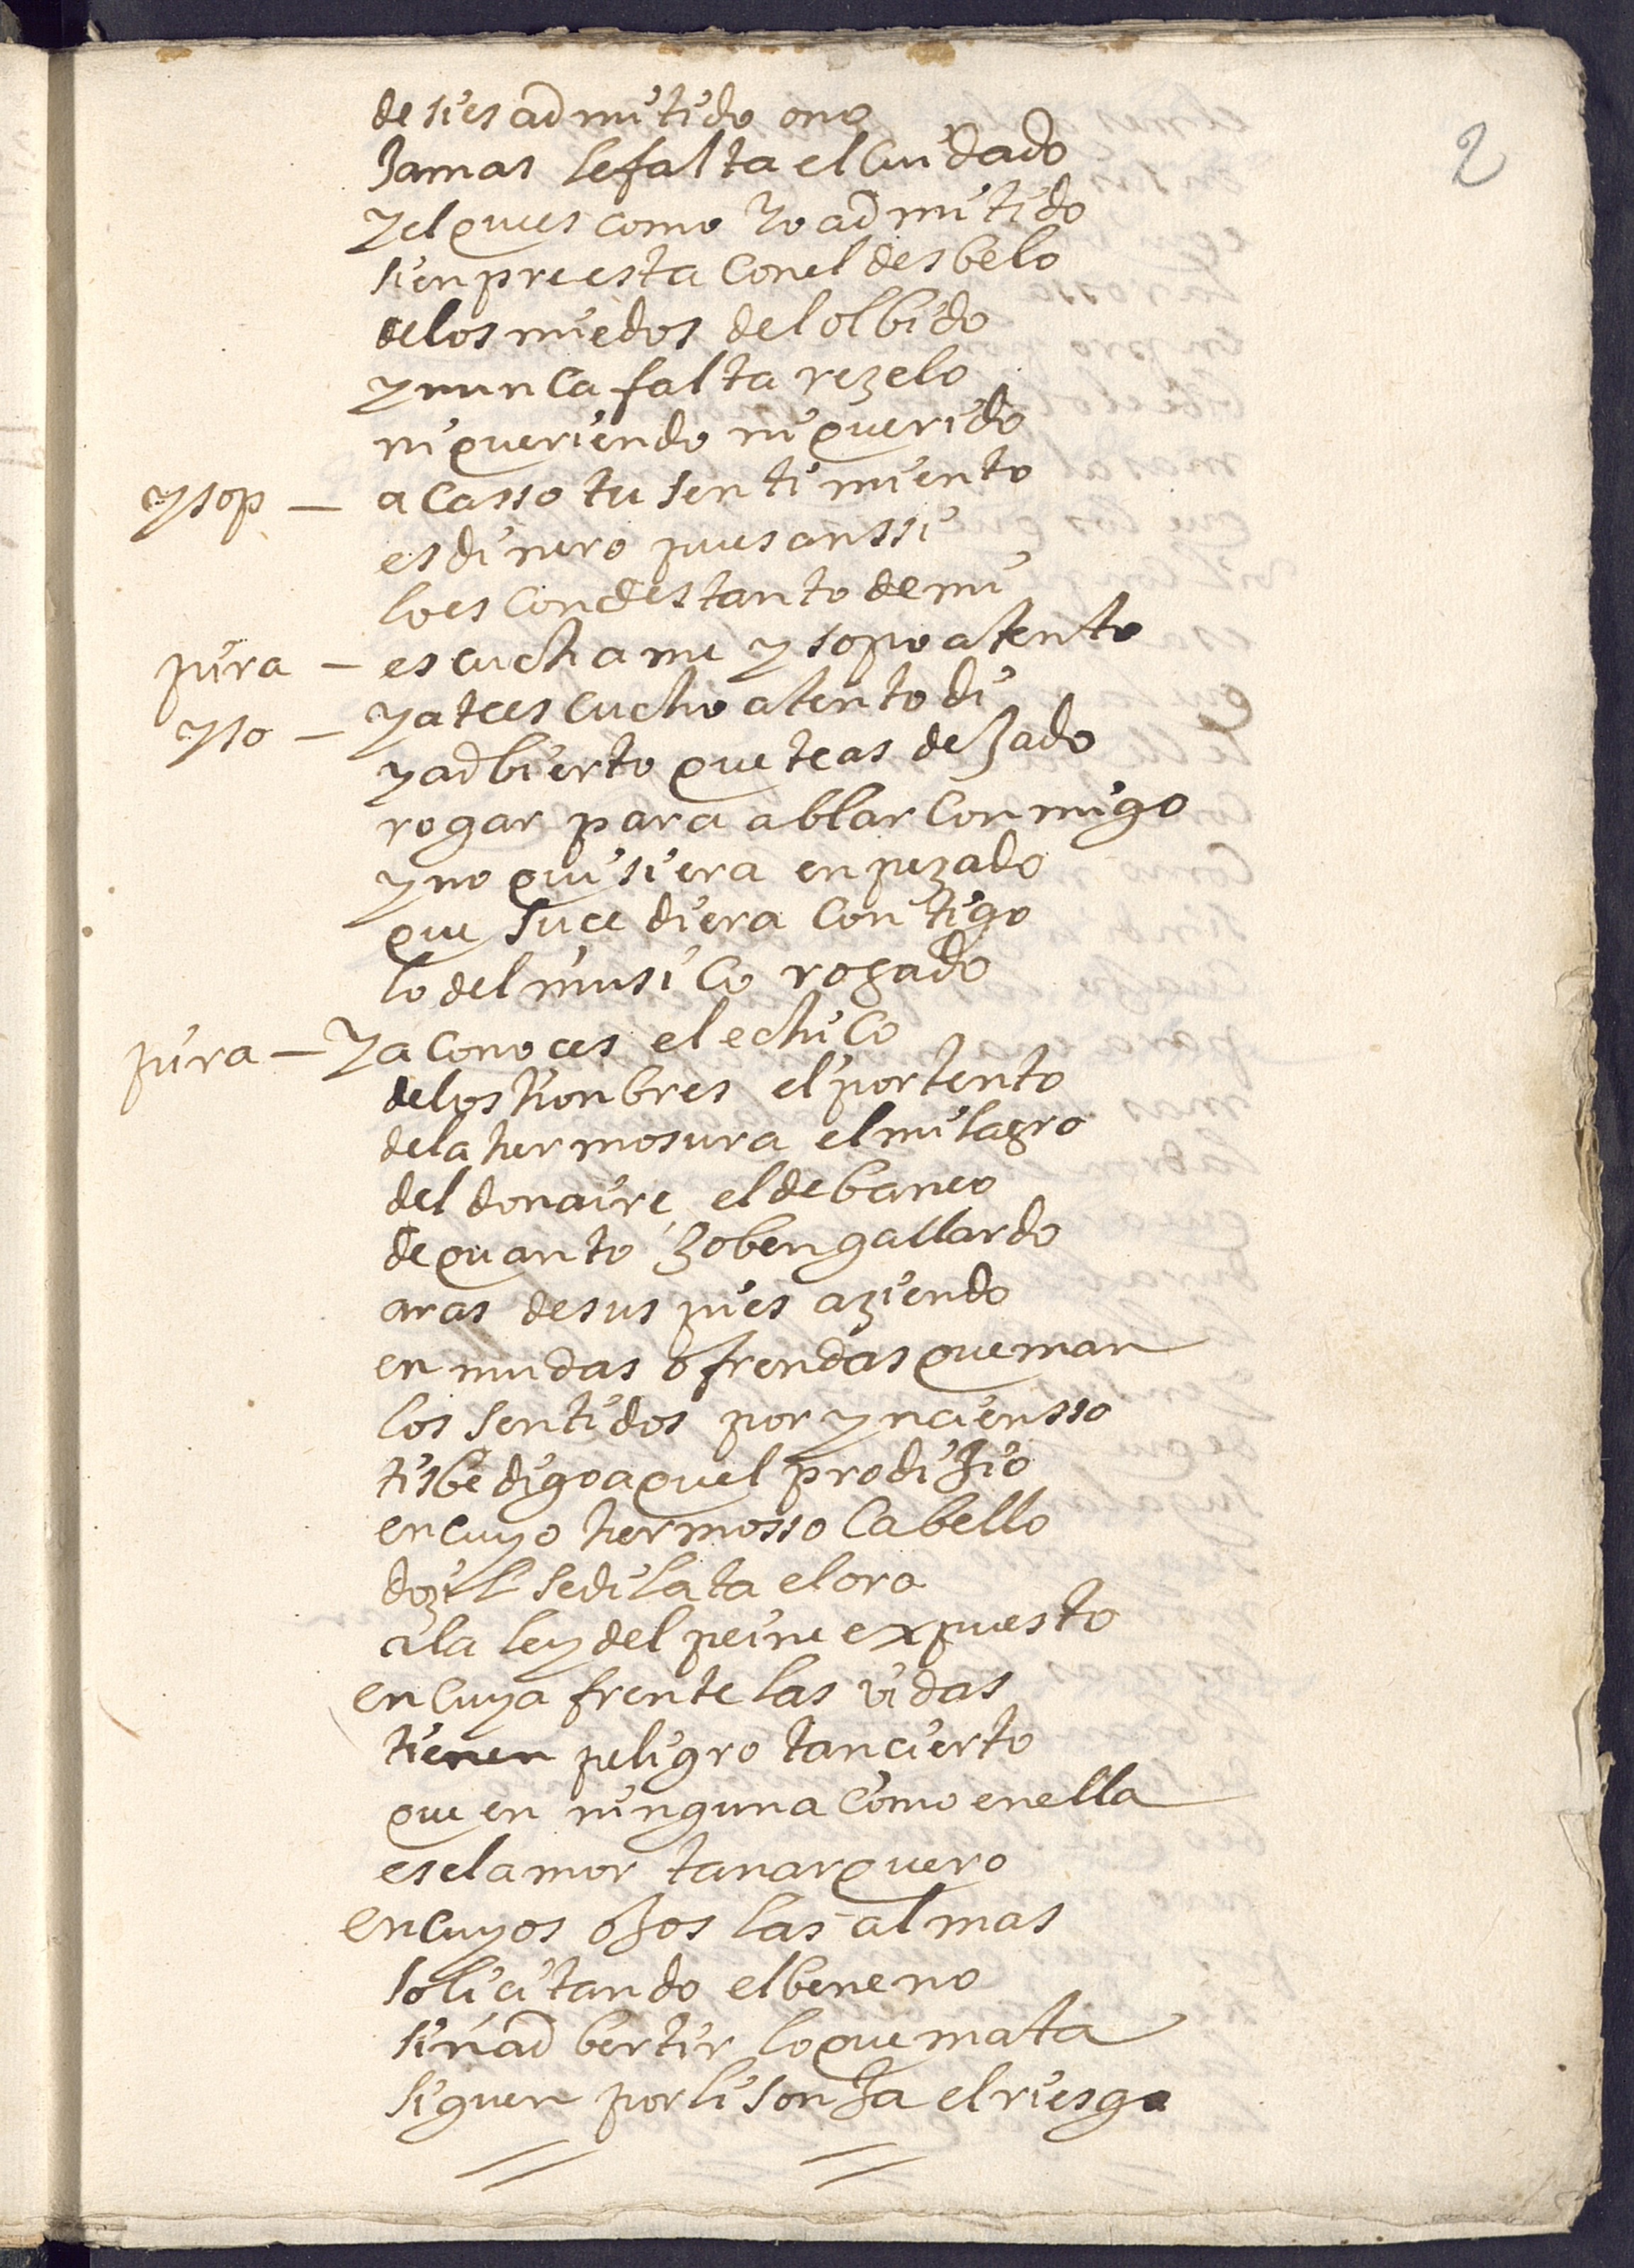 2
de si es admitido o no
Jamas le falta el Cuidado
y el que es como yo admitido
sienpre esta Con el desbelo
de los miedos del olbido
y nunca falta rezelo
ni queriendo ni querido
ysop — a Casso tu sentimiento
es dinero pues anssi
lo escondes tanto de mi
pira — escuchame ysopo atento
yso — ya te escucho atento di
y adbierto que te as deJado
rogar para ablar Conmigo
y no quisiera enpezado
que sucediera Contigo
lo del musico rogado
pira — Ya conoces el echico
de los honbres el portento
de la hermosura el milagro
del donaire el debaneo
de quanto Joben gallardo
aras de sus pies aziendo
en mudas ofrendas queman
los sentidos por ynciensso
tisbe digo aquel prodiJio
en cuyo hermosso Cabello
dozil se dilata el oro
a la ley del peine expuesto
en Cuya frente las vidas
tienen peligro tan cierto
que en ninguna Como en ella
es el amor tan arquero
en cuyos oJos las almas
solicitando el beneno
sin adbertir lo que mata
siguen por lisonJa el riesgo